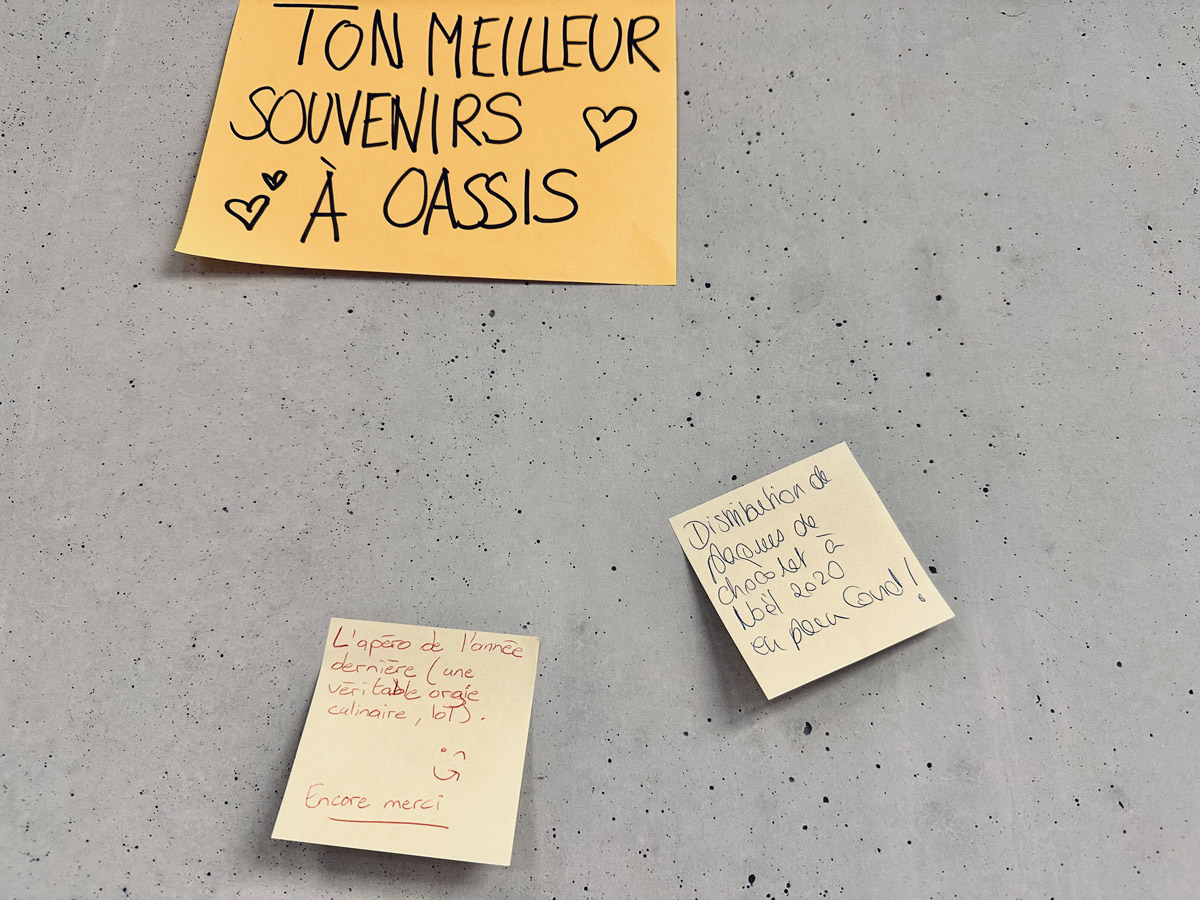 TON MEILLEUR
SOUVENIRS
À OASSIS
Distribution de
plaques de
chocolat à
Noël 2020
en plein Covid !
L'apéro de l'année
dernière (une
véritable orgie
culinaire, loT).
Encore merci